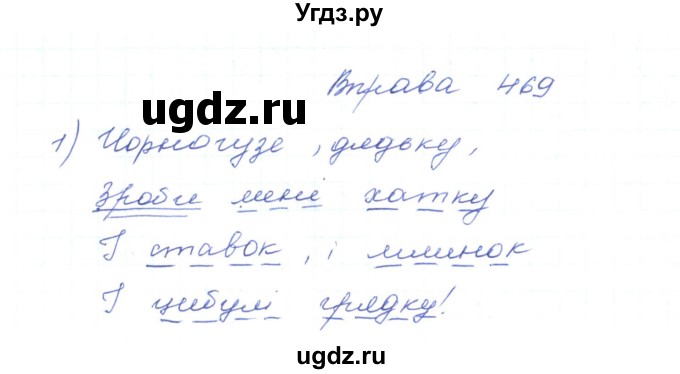 Угдз.ру
Вправа 469
ugdz.ru
1) Чорногузе, дядьку,
Зроби мені хатку
І ставок, і млинок
І цибулі грядку!
ugdz.ru